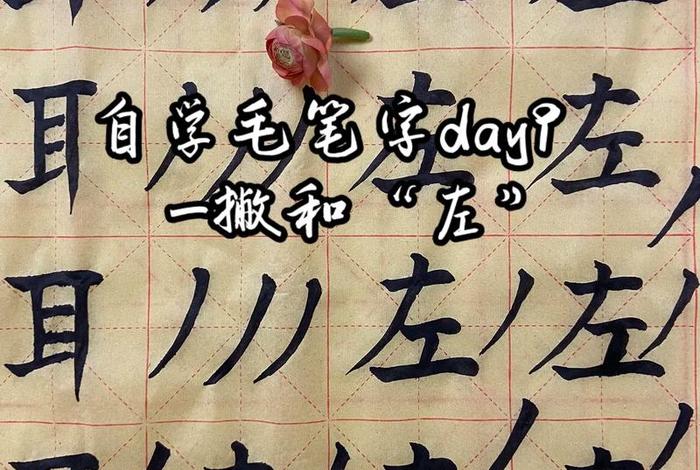 自学毛笔字day9
一撇和“左”
耳 左 左
耳 丿丿丿 左 丿 左 丿